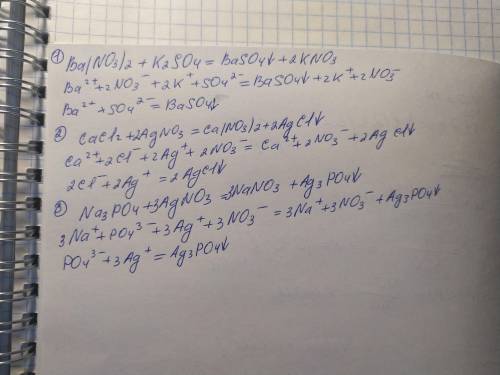 ① Ba(NO₃)₂ + K₂SO₄ = BaSO₄↓ + 2KNO₃
Ba²⁺ + 2NO₃⁻ + 2K⁺ + SO₄²⁻ = BaSO₄↓ + 2K⁺ + 2NO₃⁻
Ba²⁺ + SO₄²⁻ = BaSO₄↓
② CaCl₂ + 2AgNO₃ = Ca(NO₃)₂ + 2AgCl↓
Ca²⁺ + 2Cl⁻ + 2Ag⁺ + 2NO₃⁻ = Ca²⁺ + 2NO₃⁻ + 2AgCl↓
2Cl⁻ + 2Ag⁺ = 2AgCl↓
③ Na₃PO₄ + 3AgNO₃ = 3NaNO₃ + Ag₃PO₄↓
3Na⁺ + PO₄³⁻ + 3Ag⁺ + 3NO₃⁻ = 3Na⁺ + 3NO₃⁻ + Ag₃PO₄↓
PO₄³⁻ + 3Ag⁺ = Ag₃PO₄↓